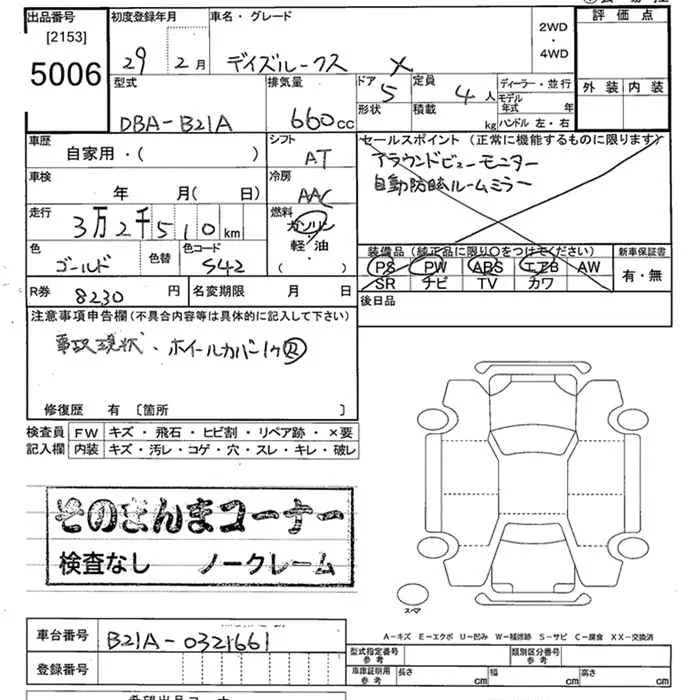 出品番号 初度登録年月 車名・グレード 2WD・4WD 評価点
[2153]
5006 29 2月 デイズルークス X
型式 排気量 ドア 5 定員 4人 ディーラー・並行
外装 内装
形状 積載 kg モデル年式 年
DBA-B21A 660cc ハンドル 左・右
車歴 シフト セールスポイント (正常に機能するものに限ります)
自家用・( ) AT アラウンドビューモニター
車検 冷房 自動防眩ルームミラー
年 月(日) AAC
走行 燃料
3万2千510km ガソリン・軽油・( )
色 色替 色コード 装備品 (純正品に限り〇をつけてください) 新車保証書
ゴールド S42 PS PW ABS エアB AW 有・無
SR ナビ TV カワ
R券 8230円 名変期限 月 日 後日品
注意事項申告欄(不具合内容等は具体的に記入して下さい)
事故現状・ホイールカバー1ケ欠
修復歴 有 〔箇所 〕
検査員 FW キズ・飛石・ヒビ割・リペア跡・×要
記入欄 内装 キズ・汚レ・コゲ・穴・スレ・キレ・破レ
そのまんまコーナー
検査なし ノークレーム
スペア
A-キズ E-エクボ U-凹み W-補修跡 S-サビ C-腐食 XX-交換済
車台番号 B21A-0321661
型式指定番号 参考 類別区分番号 参考
登録番号 車庫証明用 参考 長さ cm 幅 cm 高さ cm